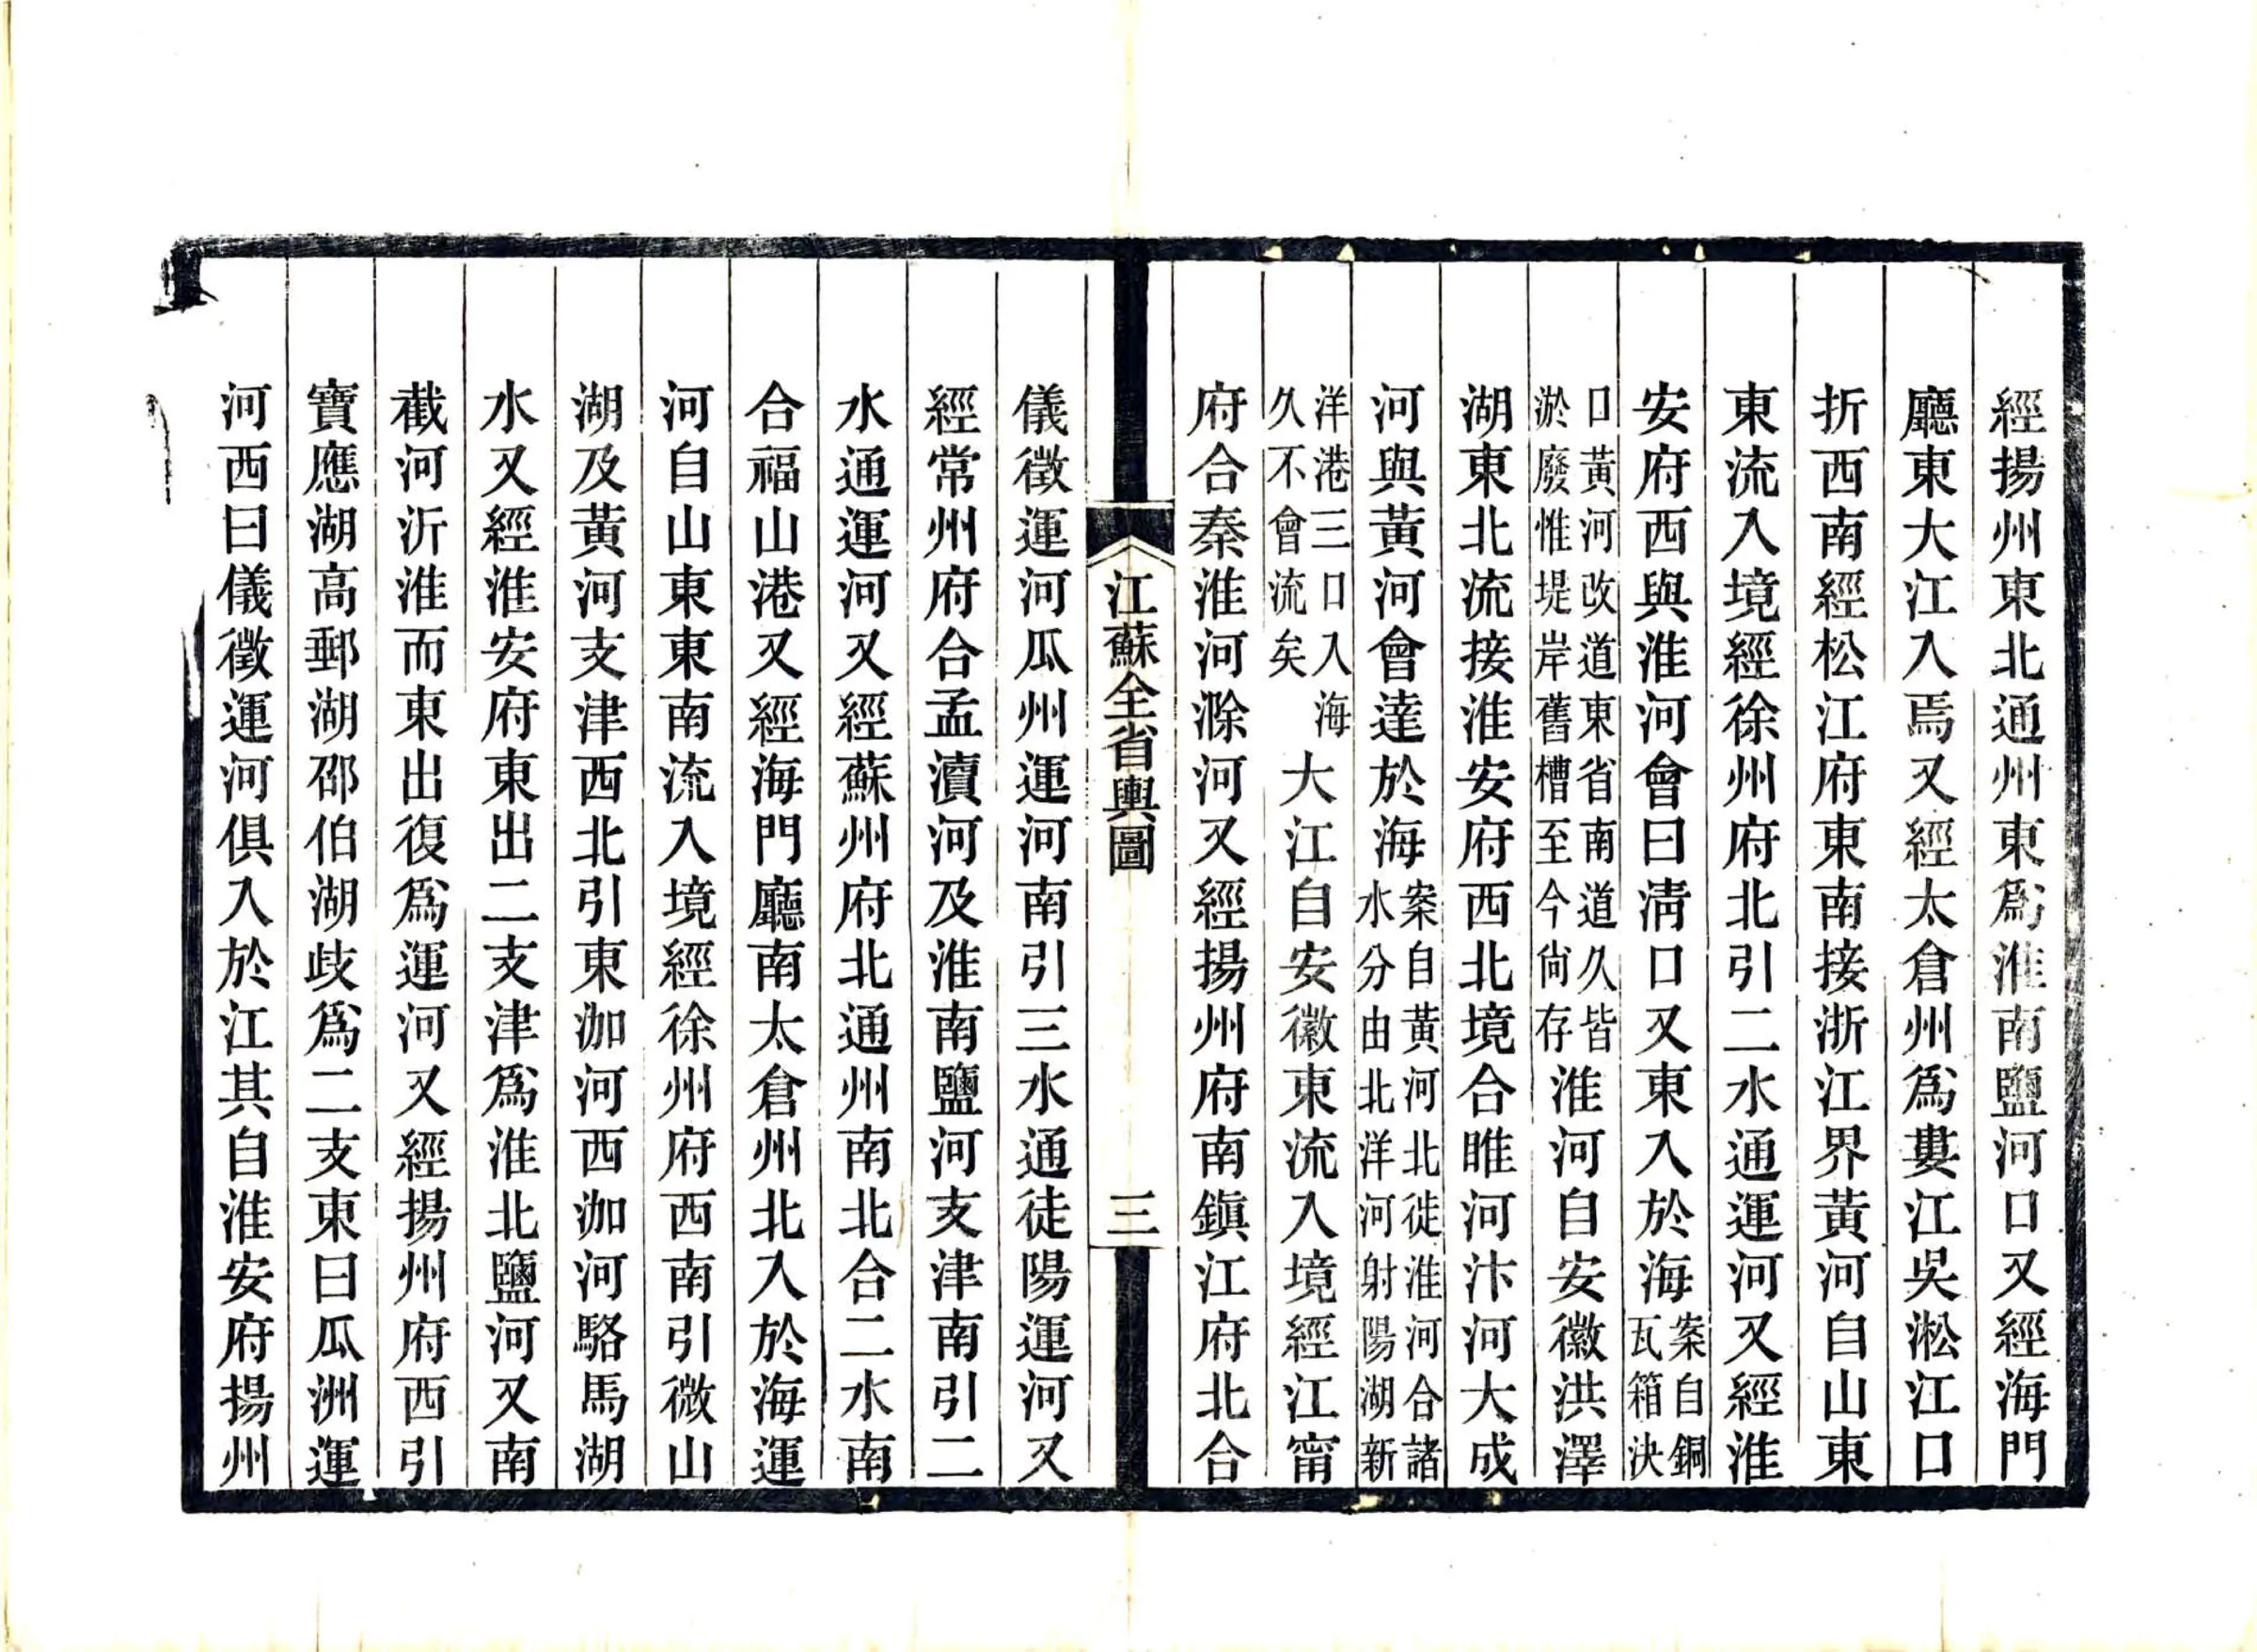 經揚州東北通州東爲淮南鹽河口又經海門
廳東大江入焉又經太倉州爲婁江吳淞江口
折西南經松江府東南接浙江界黃河自山東
東流入境經徐州府北引二水通運河又經淮
安府西與淮河會曰淸口又東入於海案自銅瓦箱決
口黃河改道東省南道久皆淤廢惟堤岸舊槽至今尙存淮河自安徽洪澤
湖東北流接淮安府西北境合睢河汴河大成
河與黃河會達於海案自黃河北徙淮河合諸水分由北洋河射陽湖新
洋港三口入海久不會流矣大江自安徽東流入境經江甯
府合秦淮河滁河又經揚州府南鎭江府北合
江蘇全省輿圖 三
儀徵運河瓜州運河南引三水通徒陽運河又
經常州府合孟瀆河及淮南鹽河支津南引二
水通運河又經蘇州府北通州南北合二水南
合福山港又經海門廳南太倉州北入於海運
河自山東東南流入境經徐州府西南引微山
湖及黃河支津西北引東泇河西泇河駱馬湖
水又經淮安府東出二支津爲淮北鹽河又南
截河沂淮而東出復爲運河又經揚州府西引
寶應湖高郵湖邵伯湖歧爲二支東曰瓜洲運
河西曰儀徵運河俱入於江其自淮安府揚州